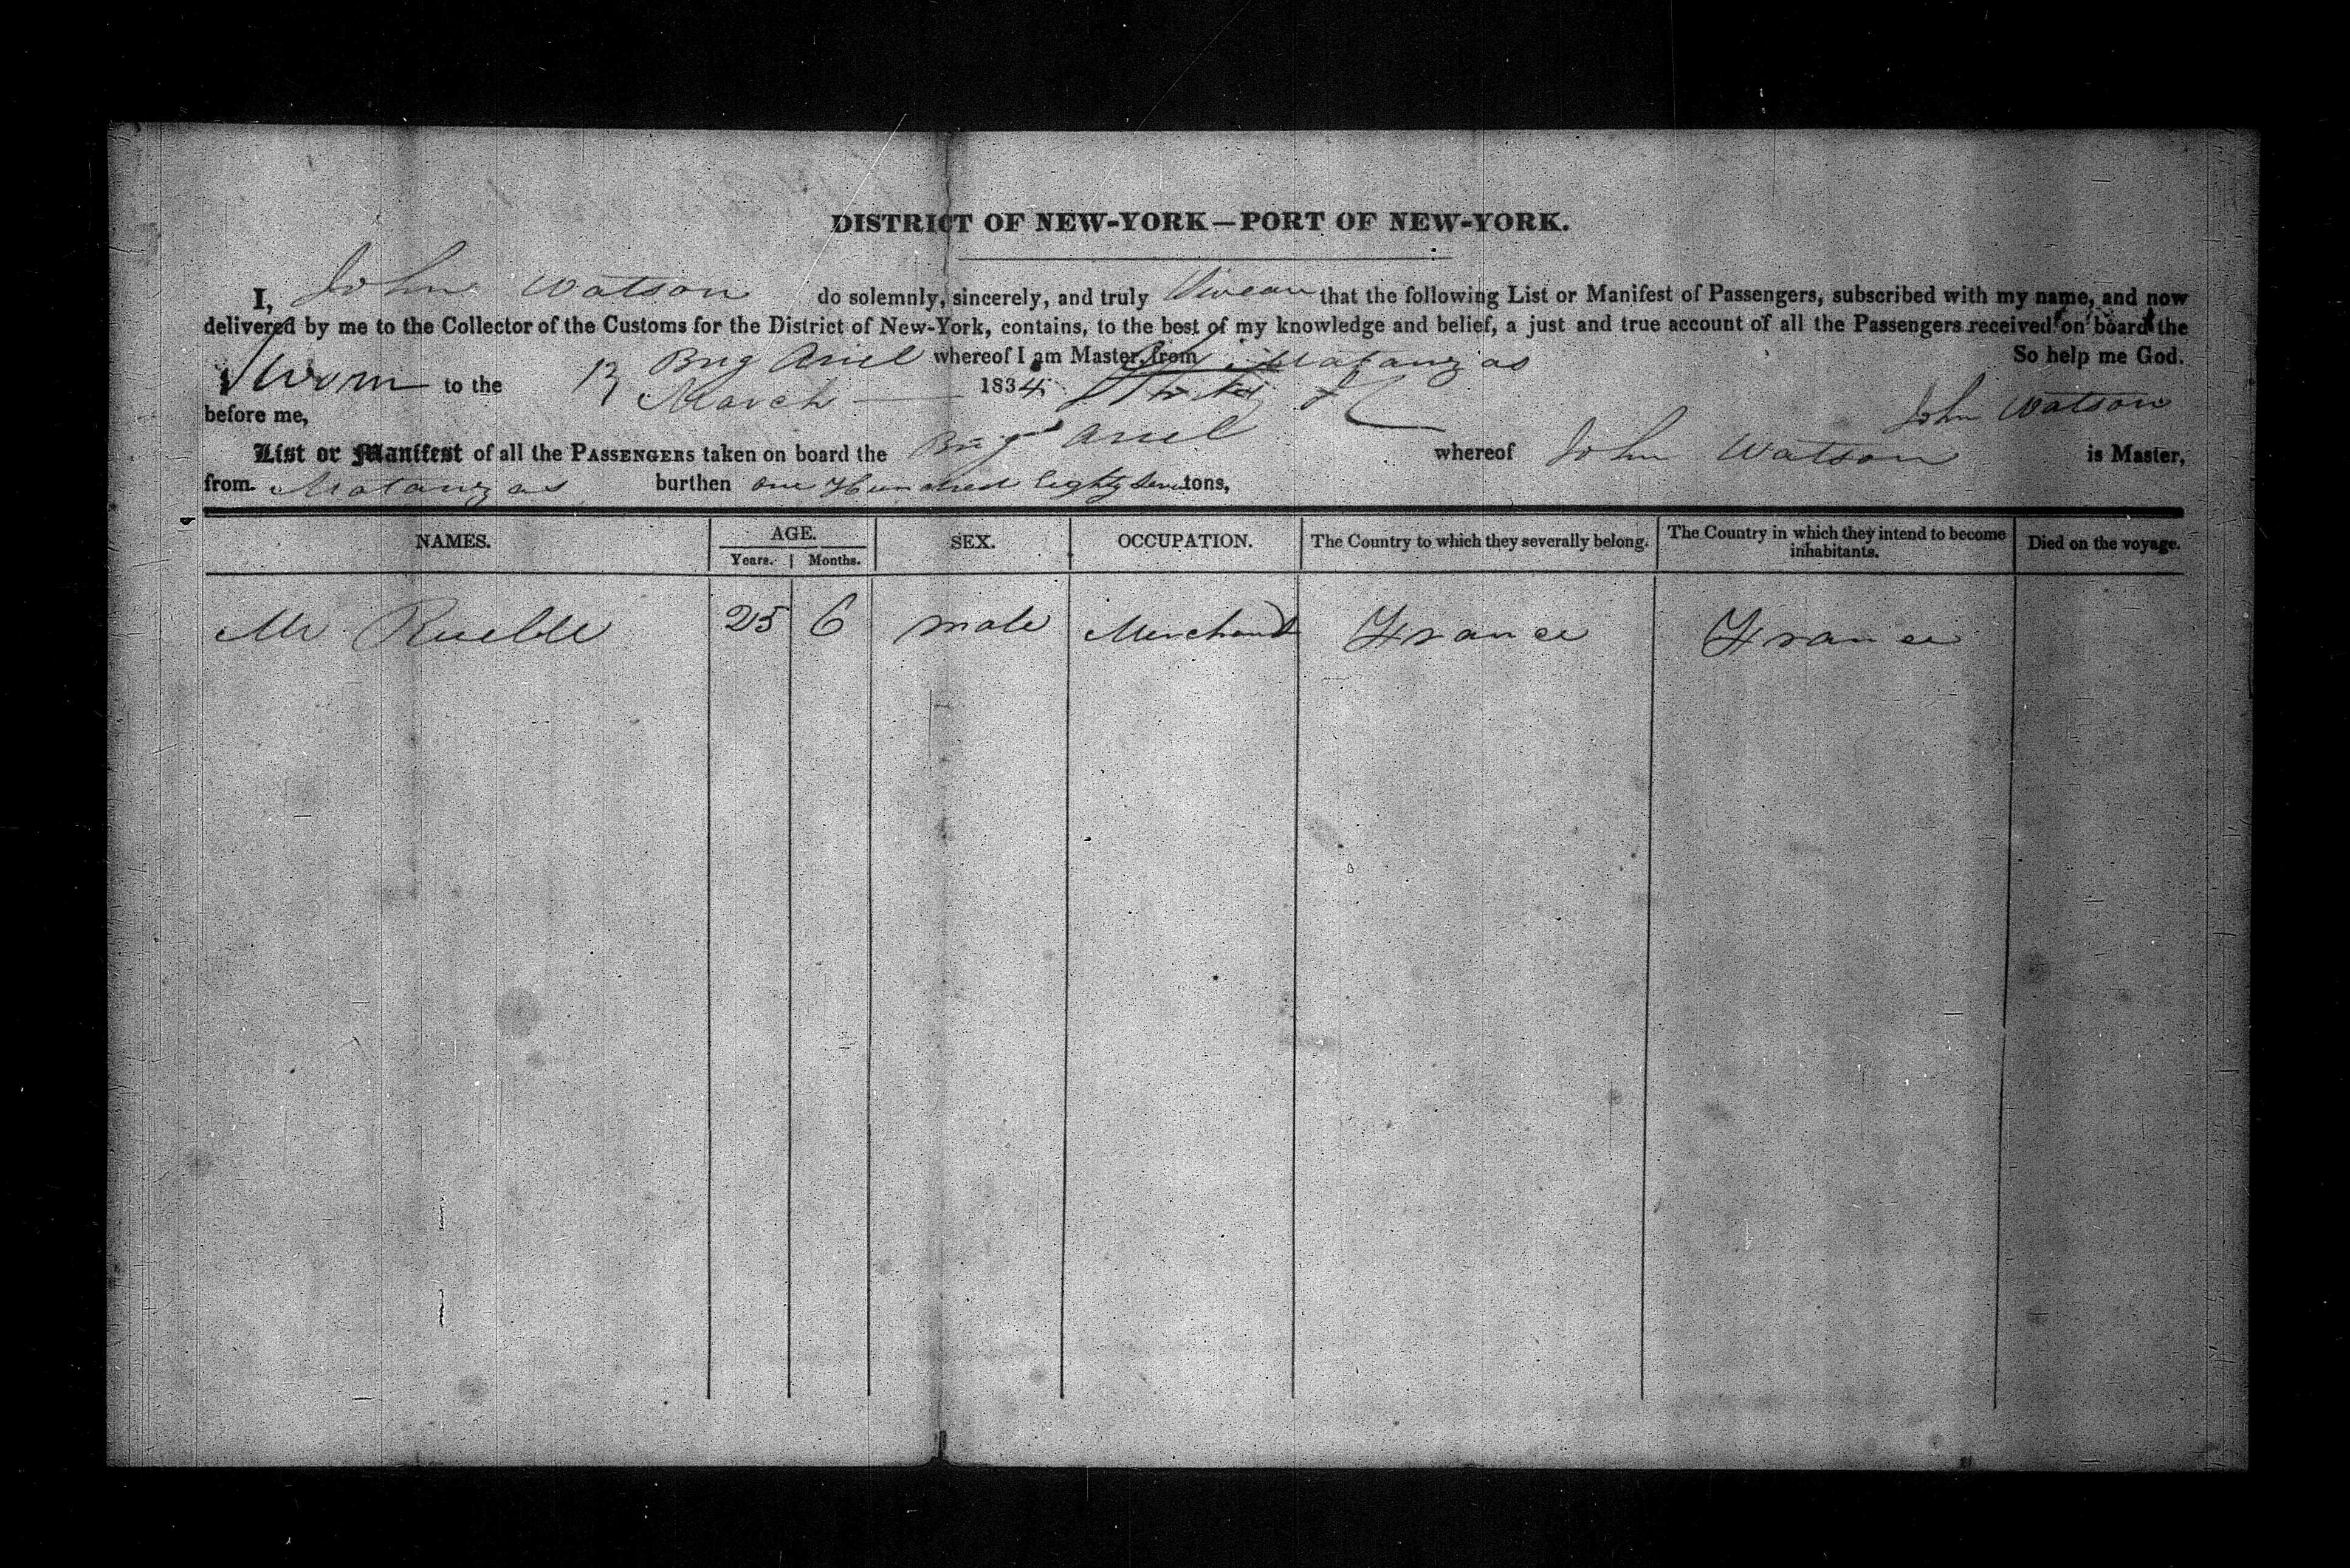 DISTRICT OF NEW-YORK—PORT OF NEW-YORK.
I, John Watson do solemnly, sincerely, and truly Swear that the following List or Manifest of Passengers, subscribed with my name, and now
delivered by me to the Collector of the Customs for the District of New-York, contains, to the best of my knowledge and belief, a just and true account of all the Passengers received on board the
Brig Ariel whereof I am Master, from Matanzas So help me God.
Sworn to the 13 March 1834
before me, John Watson
List or Manifest of all the PASSENGERS taken on board the Brig Ariel whereof John Watson is Master,
from Matanzas burthen one Hundred Eighty Seven tons,
NAMES. AGE. SEX. OCCUPATION. The Country to which they severally belong. The Country in which they intend to become inhabitants. Died on the voyage.
Years. Months.
Mr 25 6 male Merchant France France